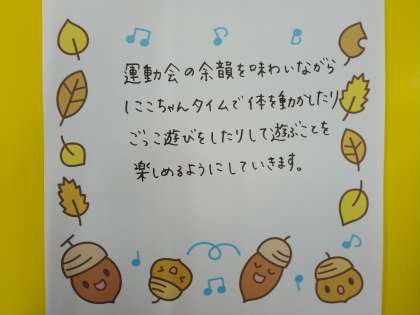 運動会の余韻を味わいながら
にこちゃんタイムで体を動かしたり
ごっこ遊びをしたりして遊ぶことを
楽しめるようにしていきます。